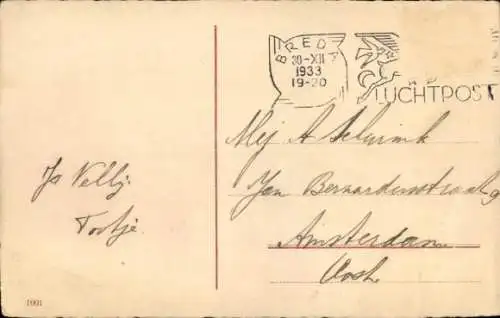 BREDA
30-XII
1933
19-20
LUCHTPOST
Mej A
Jan Bernardusstraat 9
Amsterdam
Oost
Tootje.
1001